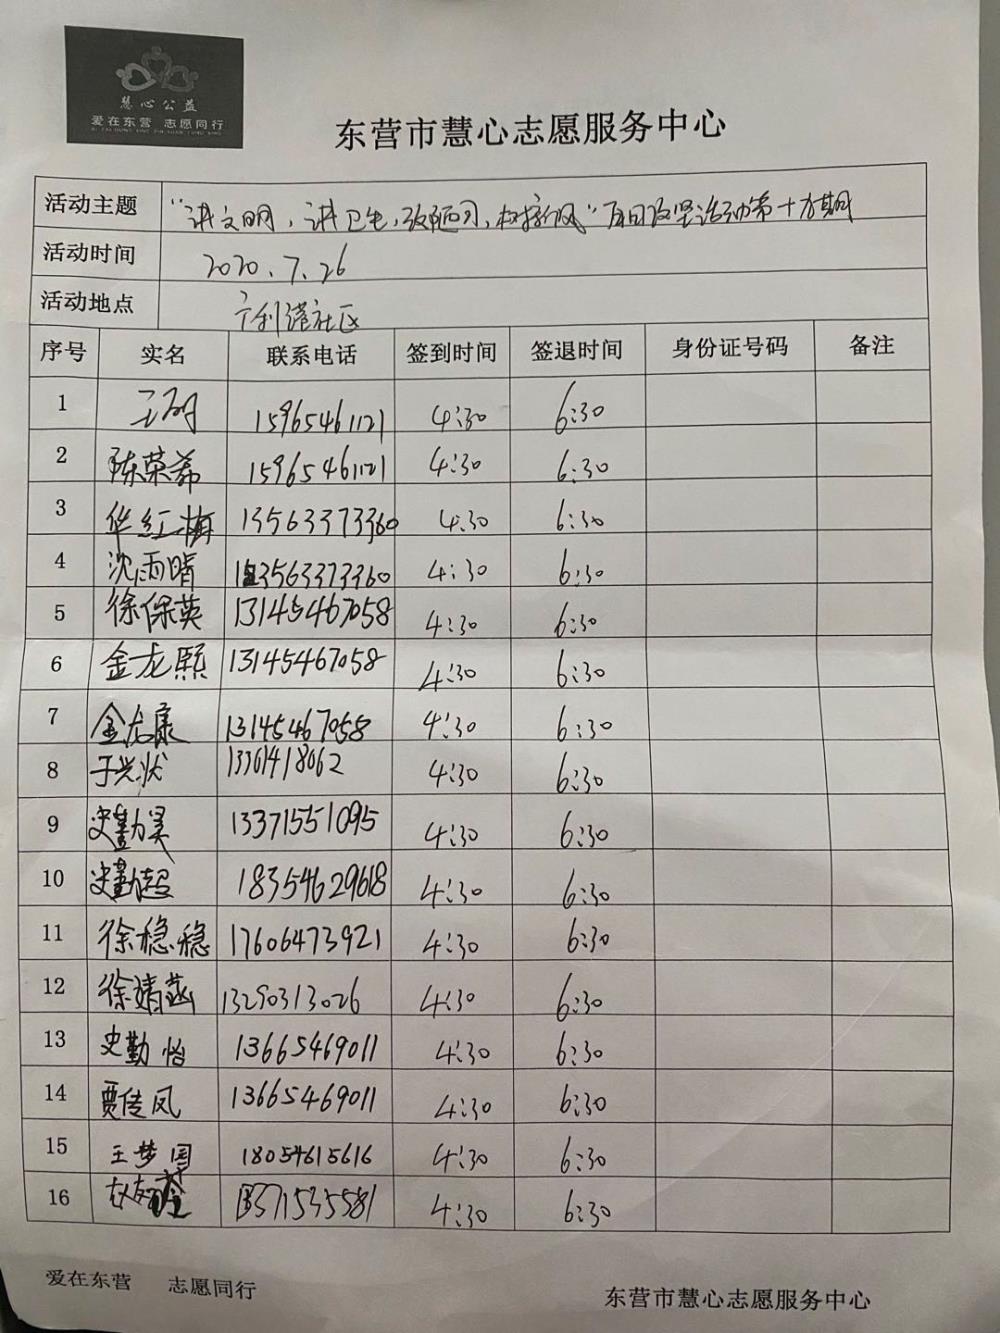 慧心公益
爱在东营 志愿同行
东营市慧心志愿服务中心
活动主题 "讲文明,讲卫生,改陋习,树新风"百日攻坚活动第十方期
活动时间 2020.7.26
活动地点 广利港社区
序号 实名 联系电话 签到时间 签退时间 身份证号码 备注
1 15965461121 4:30 6:30
2 陈荣希 15965461121 4:30 6:30
3 华红梅 13563373360 4:30 6:30
4 沈雨晴 13563373360 4:30 6:30
5 徐保英 13145467058 4:30 6:30
6 金龙熙 13145467058 4:30 6:30
7 金龙康 13145467058 4:30 6:30
8 于兴状 13361418062 4:30 6:30
9 史勤昊 13371551095 4:30 6:30
10 史勤超 18354629618 4:30 6:30
11 徐稳稳 17606473921 4:30 6:30
12 徐靖菡 13290313026 4:30 6:30
13 史勤怡 13665469011 4:30 6:30
14 贾传凤 13665469011 4:30 6:30
15 王梦国 18054615616 4:30 6:30
16 4:30 6:30
爱在东营 志愿同行
东营市慧心志愿服务中心